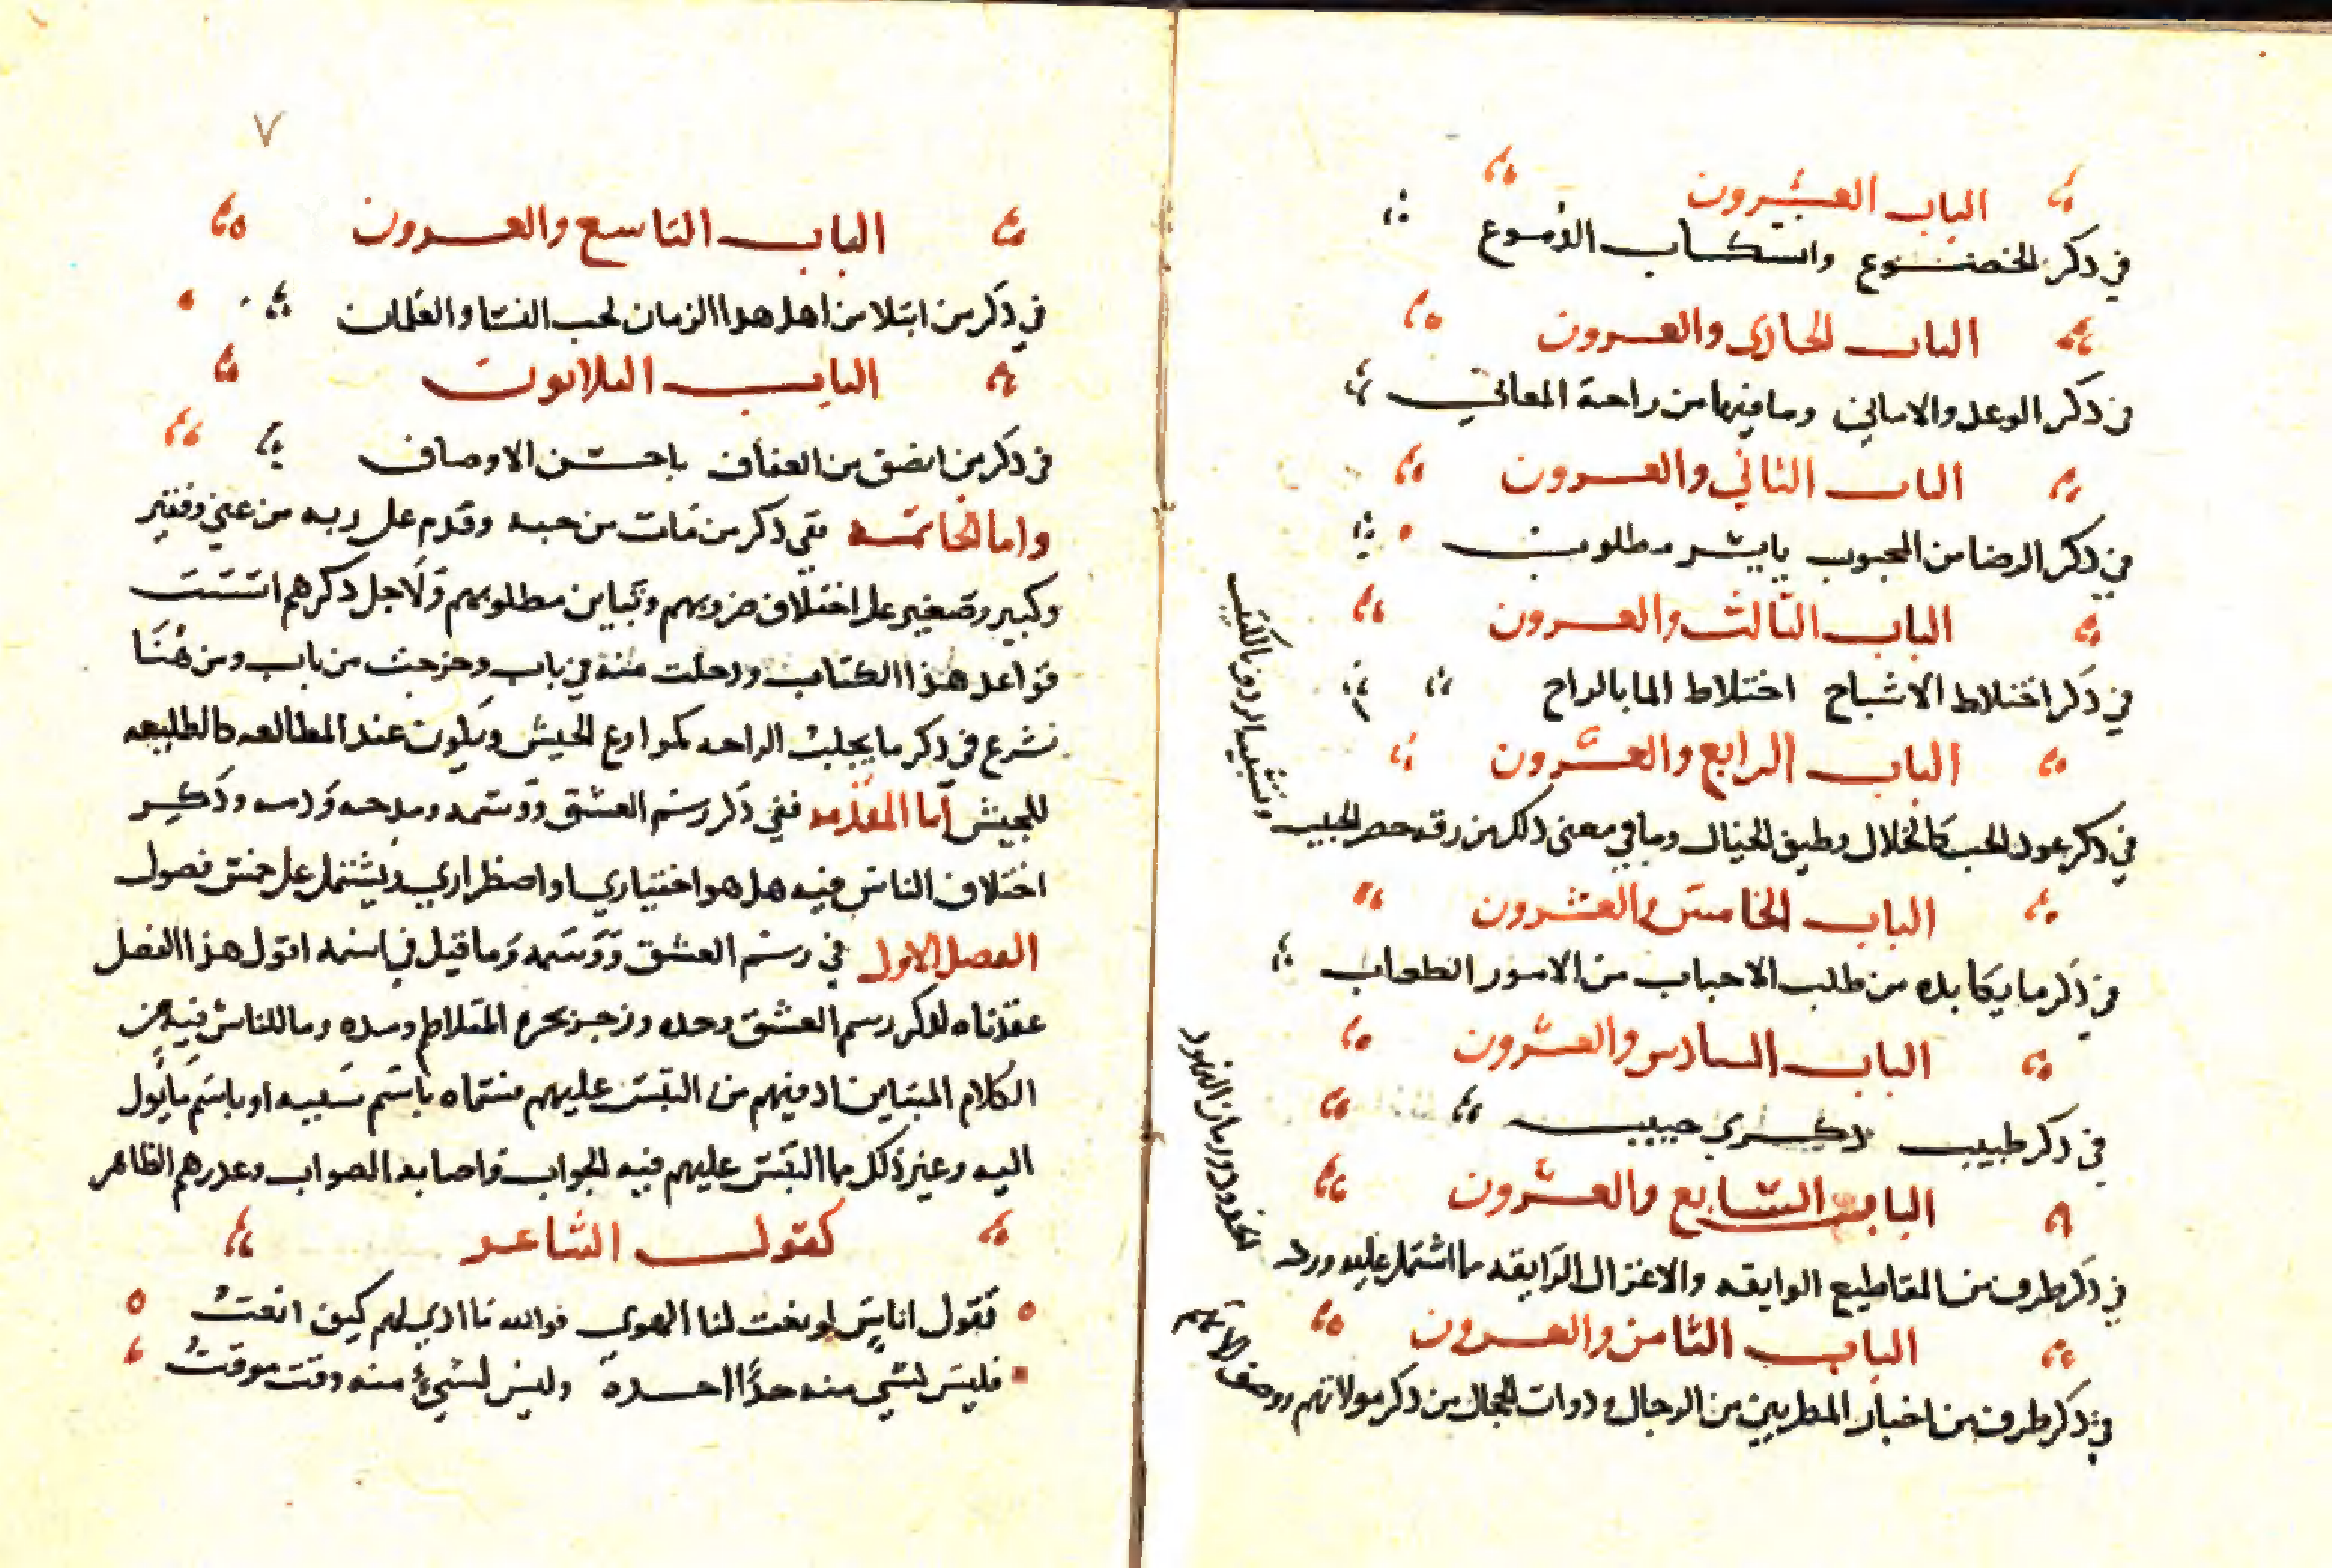 الباب العشرون
في ذكر الخضوع وانسكاب الدموع
الباب الحادي والعشرون
في ذكر الوعد والاماني وما فيها من راحة المعاني
الباب الثاني والعشرون
في ذكر الرضا من المحبوب بايسر مطلوب
الباب الثالث والعشرون
في ذكر اختلاط الاشباح اختلاط الما بالراح
الباب الرابع والعشرون
في ذكر عود المحب كالخلال وطيف الخيال وما في معنى ذلك من رقة خصر الحبيب
وتشبيه الردف بالكثيب
الباب الخامس والعشرون
في ذكر ما يكابده من طلب الاحباب من الامور الصعاب
الباب السادس والعشرون
في ذكر طيب ذكرى حبيب
الباب السابع والعشرون
في ذكر طرف من المقاطيع الرايقه والاغزال الرايقه مما اشتمل عليه ورد
الخدود ورمان النهود
الباب الثامن والعشرون
في ذكر طرف من اخبار المطربين من الرجال وذوات الحجال من ذكر موالاتهم ووصف الاتهم
٧
الباب التاسع والعشرون
في ذكر من ابتلا من اهل هذا الزمان بحب النسا والغلمان
الباب الثلاثون
في ذكر من اتصف من العفاف باحسن الاوصاف
واما الخاتمه ففي ذكر من مات من حبه وقدم على ربه من غني وفقير
وكبير وصغير على اختلاف ضروبهم وتباين مطلوبهم ولاجل ذكرهم اسست
قواعد هذا الكتاب ودخلت منه في باب وخرجت من باب ومن هنا
نشرع في ذكر ما يجلب الراحه ويكون عند المطالعه كالطليعه
للجيش اما المقدمه ففي ذكر رسم العشق ووسمه ومدحه وذمه وذكر
اختلاف الناس فيه هل هو اختياري او اضطراري ويشتمل على خمس فصول
الفصل الاول في رسم العشق ووسمه وما قيل في اسمه اقول هذا الفصل
عقدناه لذكر رسم العشق وحده وزجر بحره المتلاطم ومده وما للناس فيه من
الكلام المتباين اذ فيهم من التبس عليهم فسماه باسم سببه او باسم ما يؤل
اليه وغير ذلك مما التبس عليهم فيه الجواب فاصابه الصواب وعذرهم الظاهر
كقول الشاعر
فقول اناس لو نعت لنا الهوى فوالله ما ادري لهم كيف انعت
فليس لشي منه حد احده وليس لشيء منه وقت موقت